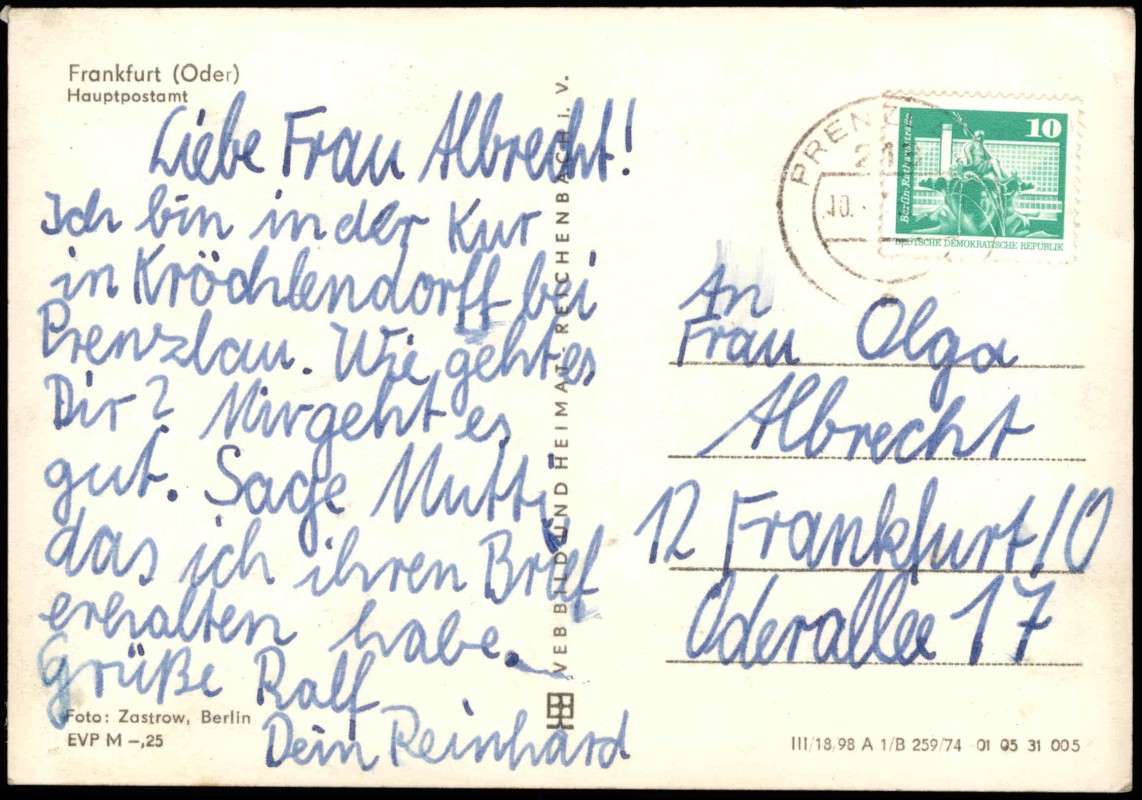 Frankfurt (Oder)
Hauptpostamt
Liebe Frau Albrecht!
Ich bin in der Kur
in Kröchlendorff bei
Prenzlau. Wie geht es
Dir? Mir geht es
gut. Sage Mutti
das ich ihren Brief
erhalten habe.
Grüße Ralf
Dein Reinhard
Foto: Zastrow, Berlin
EVP M –,25
VEB BILD UND HEIMAT REICHENBACH i. V.
PRENZ
10.
10
Berlin-Rathausstraße
DEUTSCHE DEMOKRATISCHE REPUBLIK
An
Frau Olga
Albrecht
12 Frankfurt/O
Oderallee 17
III/18/98 A 1/B 259/74 01 05 31 005